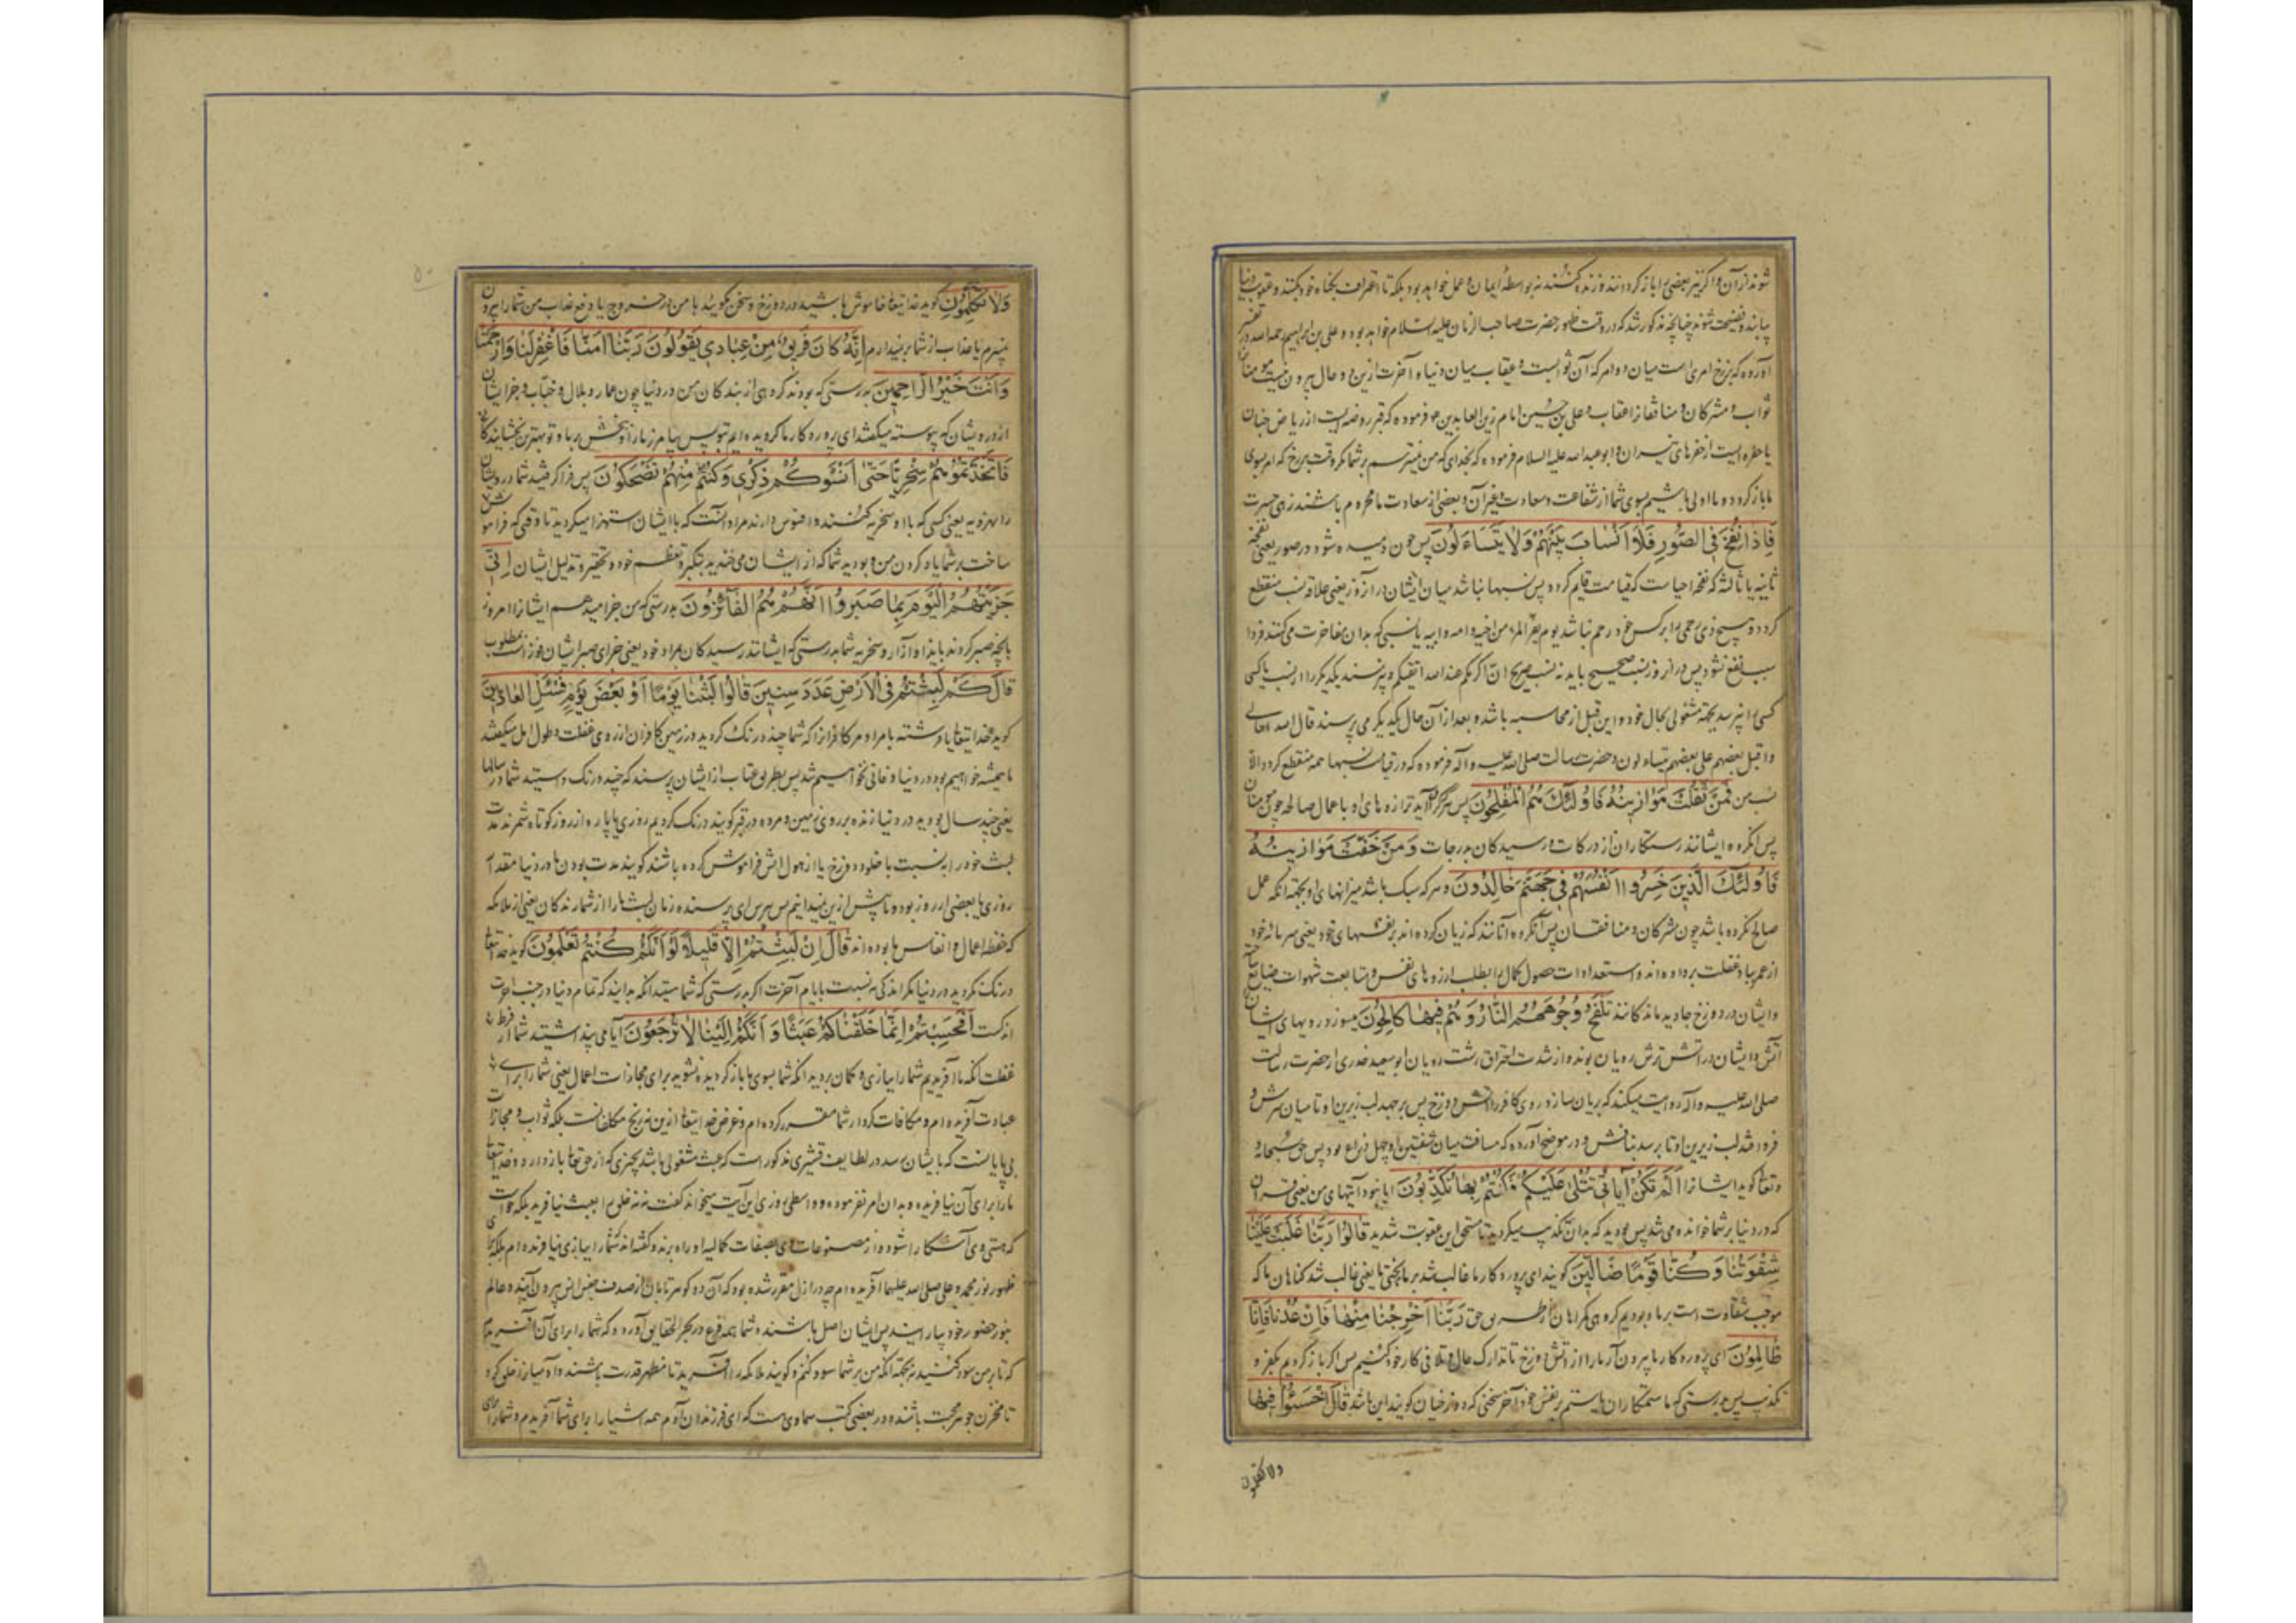 شوند از آن و اگر نیز بعضی را باز گردانند و زنده کنند نه بواسطه ایمان و عمل خواهد بود بلکه تا اعتراف بگناه خود کنند و عقوبت
یابند و فضیحت شوند چنانچه مذکور شد که در وقت ظهور حضرت صاحب الزمان علیه السلام خواهد بود و علی بن ابراهیم رحمه الله در تفسیر
آورده که برزخ امری است میان دو امر که آن ثوابست و عقاب میان دنیا و آخرت ازین دو حال بیرون نیست مومنان
ثواب و مشرکان و منافقان را عقاب و علی بن حسین امام زین العابدین ع فرموده که قبر روضه ایست از ریاض جنان
یا حفره ایست از حفرهای نیران و ابو عبد الله علیه السلام فرموده که بخدای که من نمیترسم بر شما مگر وقت برزخ که امر بسوی
ما باز گردد و ما اولی باشیم بسوی شما از شفاعت و سعادت و غیر آن و بعضی از سعادت ما محروم باشند زهی حسرت
فَاِذَا نُفِخَ فِی الصُّورِ فَلَا اَنْسَابَ بَیْنَهُمْ وَلَا یَتَسَاءَلُونَ پس چون دمیده شود در صور یعنی نفخه
ثانیه یا ثالثه که نفخه احیاست که قیامت قایم گردد پس نسبها نباشد میان ایشان در آنروز یعنی علاقه نسب منقطع
گردد و هیچ ذی رحمی را بر کس خود رحم نباشد یوم یفر المرء من اخیه و امه و ابیه یا نسبی که بدان مفاخرت می کنند فردا
سبب نفع نشود پس در آن روز نسبت صحیح باید نه نسب صریح ان اکرمکم عند الله اتقیکم و نپرسند یکدیگر را از نسب یا کسی
کسی را نپرسد بجهة مشغولی بحال خود و این قبل از محاسبه باشد و بعد از آن حال یکدیگر می پرسند قال الله تعالی
و اقبل بعضهم علی بعض یتساءلون و حضرت رسالت صلی الله علیه و آله فرموده که در قیامت نسبها همه منقطع گردد الا
نسب من فَمَنْ ثَقُلَتْ مَوَازِینُهُ فَاُولٰئِکَ هُمُ الْمُفْلِحُونَ پس هر که گران آید ترازوهای او باعمال صالحه چون مومنان
پس آنگروه ایشانند رستکاران از درکات و رسیدکان بدرجات وَمَنْ خَفَّتْ مَوَازِینُهُ
فَاُولٰئِکَ الَّذِینَ خَسِرُوا اَنْفُسَهُمْ فِی جَهَنَّمَ خَالِدُونَ و هر که سبک باشد میزانهای او بجهة آنکه عمل
صالح نکرده باشد چون مشرکان و منافقان پس آنگروه آنانند که زیان کرده اند بر نفسهای خود یعنی سرمایه خود
از عمر بباد غفلت برداده اند و استعدادات حصول کمال را بطلب آرزوهای نفس و متابعت شهوات ضایع
و ایشان در دوزخ جاوید مانندکانند تَلْفَحُ وُجُوهَهُمُ النَّارُ وَهُمْ فِیهَا کَالِحُونَ میسوزد رویهای ایشان
آتش و ایشان در آتش ترش رویان بوند و از شدت احتراق زشت رویان ابو سعید خدری از حضرت رسالت
صلی الله علیه و آله روایت میکند که بریان سازد روی کافر را آتش دوزخ پس برجهد لب زبرین او تا میان سرش و
فرو افتد لب زیرین او تا برسد بنافش و در موضح آورده که مسافت میان شفتین او چهل ذراع بود پس حق سبحانه
و تعالی گوید ایشانرا اَلَمْ تَکُنْ آیَاتِی تُتْلٰی عَلَیْکُمْ فَکُنْتُمْ بِهَا تُکَذِّبُونَ آیا نبود آیتهای من یعنی قرآن
که در دنیا بر شما خوانده می شد پس بودید که بدان تکذیب میکردید تا مستحق این عقوبت شدید قَالُوا رَبَّنَا غَلَبَتْ عَلَیْنَا
شِقْوَتُنَا وَکُنَّا قَوْمًا ضَالِّینَ گویند ای پروردکار ما غالب شد بر ما بدبختی ما یعنی غالب شد گناهان ما که
موجب شقاوت است بر ما و بودیم گروهی گمراهان از طریق حق رَبَّنَا اَخْرِجْنَا مِنْهَا فَاِنْ عُدْنَا فَاِنَّا
ظَالِمُونَ ای پروردکار ما بیرون آر ما را از آتش دوزخ تا تدارک حال و تلافی کار خود کنیم پس اگر باز گردیم بکفر و
تکذیب پس بدرستی که ما ستمکاران باشیم بر نفس خود آخر سخنی که دوزخیان گویند این باشد قَالَ اخْسَئُوا فِیهَا
ولا تکلمون
وَلَا تُکَلِّمُونِ گوید خدایتعالی خاموش باشید در دوزخ و سخن مگویید با من در خروج یا دفع عذاب من شما را بیرون
نبرم یا عذاب از شما برنیدارم اِنَّهُ کَانَ فَرِیقٌ مِنْ عِبَادِی یَقُولُونَ رَبَّنَا آمَنَّا فَاغْفِرْ لَنَا وَارْحَمْنَا
وَاَنْتَ خَیْرُ الرَّاحِمِینَ بدرستی که بودند گروهی از بندکان من در دنیا چون عمار و بلال و خباب و جز ایشان
از درویشان که پیوسته میگفتند ای پروردکار ما گرویده ایم بتو پس بیامرز ما را و بخش بر ما و تو بهترین بخشایندکانی
فَاتَّخَذْتُمُوهُمْ سِخْرِیًّا حَتّٰی اَنْسَوْکُمْ ذِکْرِی وَکُنْتُمْ مِنْهُمْ تَضْحَکُونَ پس فرا گرفتید شما درویشان
را مهزو به یعنی کسی که با او سخریه کنند و افسوس دارند مراد آنست که با ایشان استهزا میکردید تا وقتی که فراموش
ساخت بر شما یاد کردن من و بودید شما که از ایشان می خندید بتکبر و تعظیم خود و تحقیر و تذلیل ایشان اِنِّی
جَزَیْتُهُمُ الْیَوْمَ بِمَا صَبَرُوا اَنَّهُمْ هُمُ الْفَائِزُونَ بدرستی که من جزا میدهم ایشانرا امروز
بآنچه صبر کردند بایذا و آزار و سخریه شما بدرستی که ایشانند رسیدکان بمراد خود یعنی جزای صبر ایشان فوز است بمطلوب
قَالَ کَمْ لَبِثْتُمْ فِی الْاَرْضِ عَدَدَ سِنِینَ قَالُوا لَبِثْنَا یَوْمًا اَوْ بَعْضَ یَوْمٍ فَسْئَلِ الْعَادِّینَ
گوید خدایتعالی یا فرشته بامر او مر کافرانرا که شما چند درنگ کردید در زمین کافران از روی غفلت و طول امل میگفتند
ما همیشه خواهیم بود در دنیا و فانی نخواهیم شد پس بطریق عتاب از ایشان پرسند که چند درنگ داشتید شما در سالها
یعنی چند سال بودید در دنیا زنده بر روی زمین و مرده در قبر گویند درنگ کردیم روزی یا پاره از روز کوتاه شمرند مدت
لبث خود را به نسبت با خلود دوزخ یا از هول آتش فراموش کرده باشند گویند مدت بودن ما در دنیا مقدار
روزی یا بعضی از روز بوده و ما بیش ازین نمیدانیم پس بپرس ای پرسنده زمان لبث ما را از شمارندکان یعنی از ملایکه
که حفظه اعمال و انفاس ما بوده اند قَالَ اِنْ لَبِثْتُمْ اِلَّا قَلِیلًا لَوْ اَنَّکُمْ کُنْتُمْ تَعْلَمُونَ گوید خدایتعالی
درنگ نکردید در دنیا مگر اندکی به نسبت بایام آخرت اگر بدرستی که شما میدانید که تمام دنیا در جنب آخرت
اندکست اَفَحَسِبْتُمْ اَنَّمَا خَلَقْنَاکُمْ عَبَثًا وَاَنَّکُمْ اِلَیْنَا لَا تُرْجَعُونَ آیا می پنداشتید شما از فرط
غفلت آنکه ما آفریدیم شما را ببازی و گمان بردید آنکه شما بسوی ما باز گردیده نشوید برای مجازات اعمال یعنی شما را برای
عبادت آفریده ام و مکافات کردار شما مقرر کرده ام و غرض خدایتعالی ازین نه رنج مکلفانست بلکه ثواب و مجازات
بی پایانست که بایشان رسد در لطایف قشیری مذکور است که عبث مشغولی باشد بچیزی که از حق تعالی باز دارد و خدایتعالی
ما را برای آن نیافریده و بدان امر نفرموده و واسطی روزی این آیت میخواند گفت نه نه خلق را بعبث نیافرید بلکه خواست
که هستی وی آشکارا شود و از مصنوعات وی بصفات کمالیه او راه برند و گفته اند شما را ببازی نیافریده ام بلکه برای
ظهور نور محمد و علی صلی الله علیهما آفریده ام چه در ازل مقرر شده بود که آن دو گوهر تابان از صدف جنس انس بیرون آیند و عالم
بنور حضور خود بیارایند پس ایشان اصل باشند و شما همه فرع در بحر الحقایق آورده که شما را برای آن آفریدم
که تا بر من سود کنید نه بجهة آنکه من بر شما سود کنم و گویند ملائکه را آفرید تا مظهر قدرت باشند و آدمیان را خلق کرد
تا مخزن جوهر محبت باشند و در بعضی کتب سماوی است که ای فرزندان آدم همه اشیا را برای شما آفریدم و شما را برای